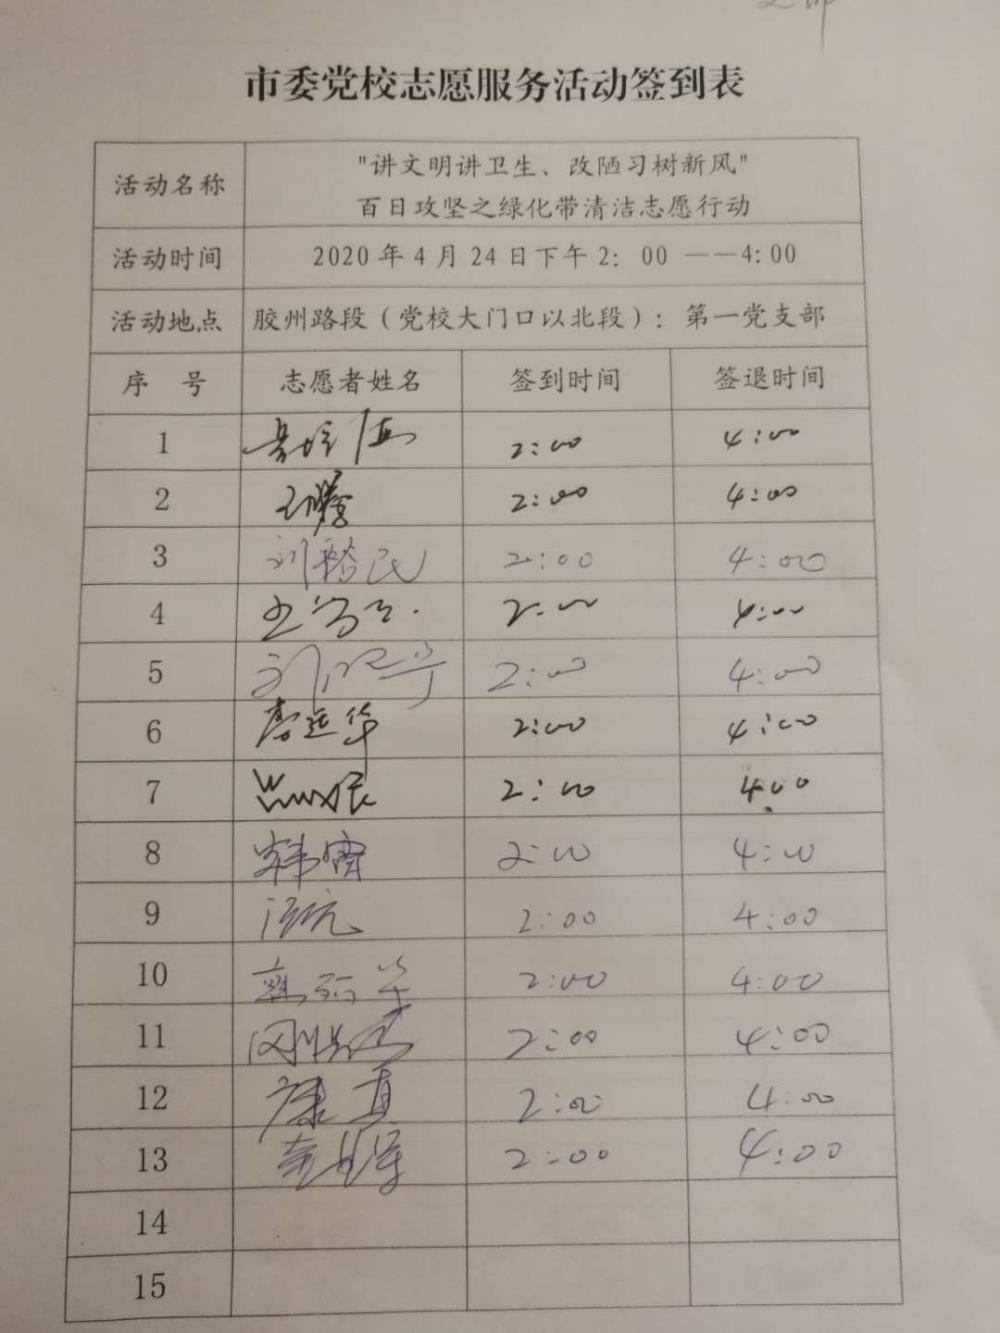 市委党校志愿服务活动签到表
活动名称
"讲文明讲卫生、改陋习树新风"
百日攻坚之绿化带清洁志愿行动
活动时间 2020年4月24日下午2：00 ——4：00
活动地点 胶州路段（党校大门口以北段）：第一党支部
序 号 志愿者姓名 签到时间 签退时间
1 2:00 4:00
2 2:00 4:00
3 2:00 4:00
4 2:00 4:00
5 2:00 4:00
6 李延华 2:00 4:00
7 2:00 4:00
8 2:00 4:00
9 2:00 4:00
10 2:00 4:00
11 2:00 4:00
12 康真 2:00 4:00
13 2:00 4:00
14
15